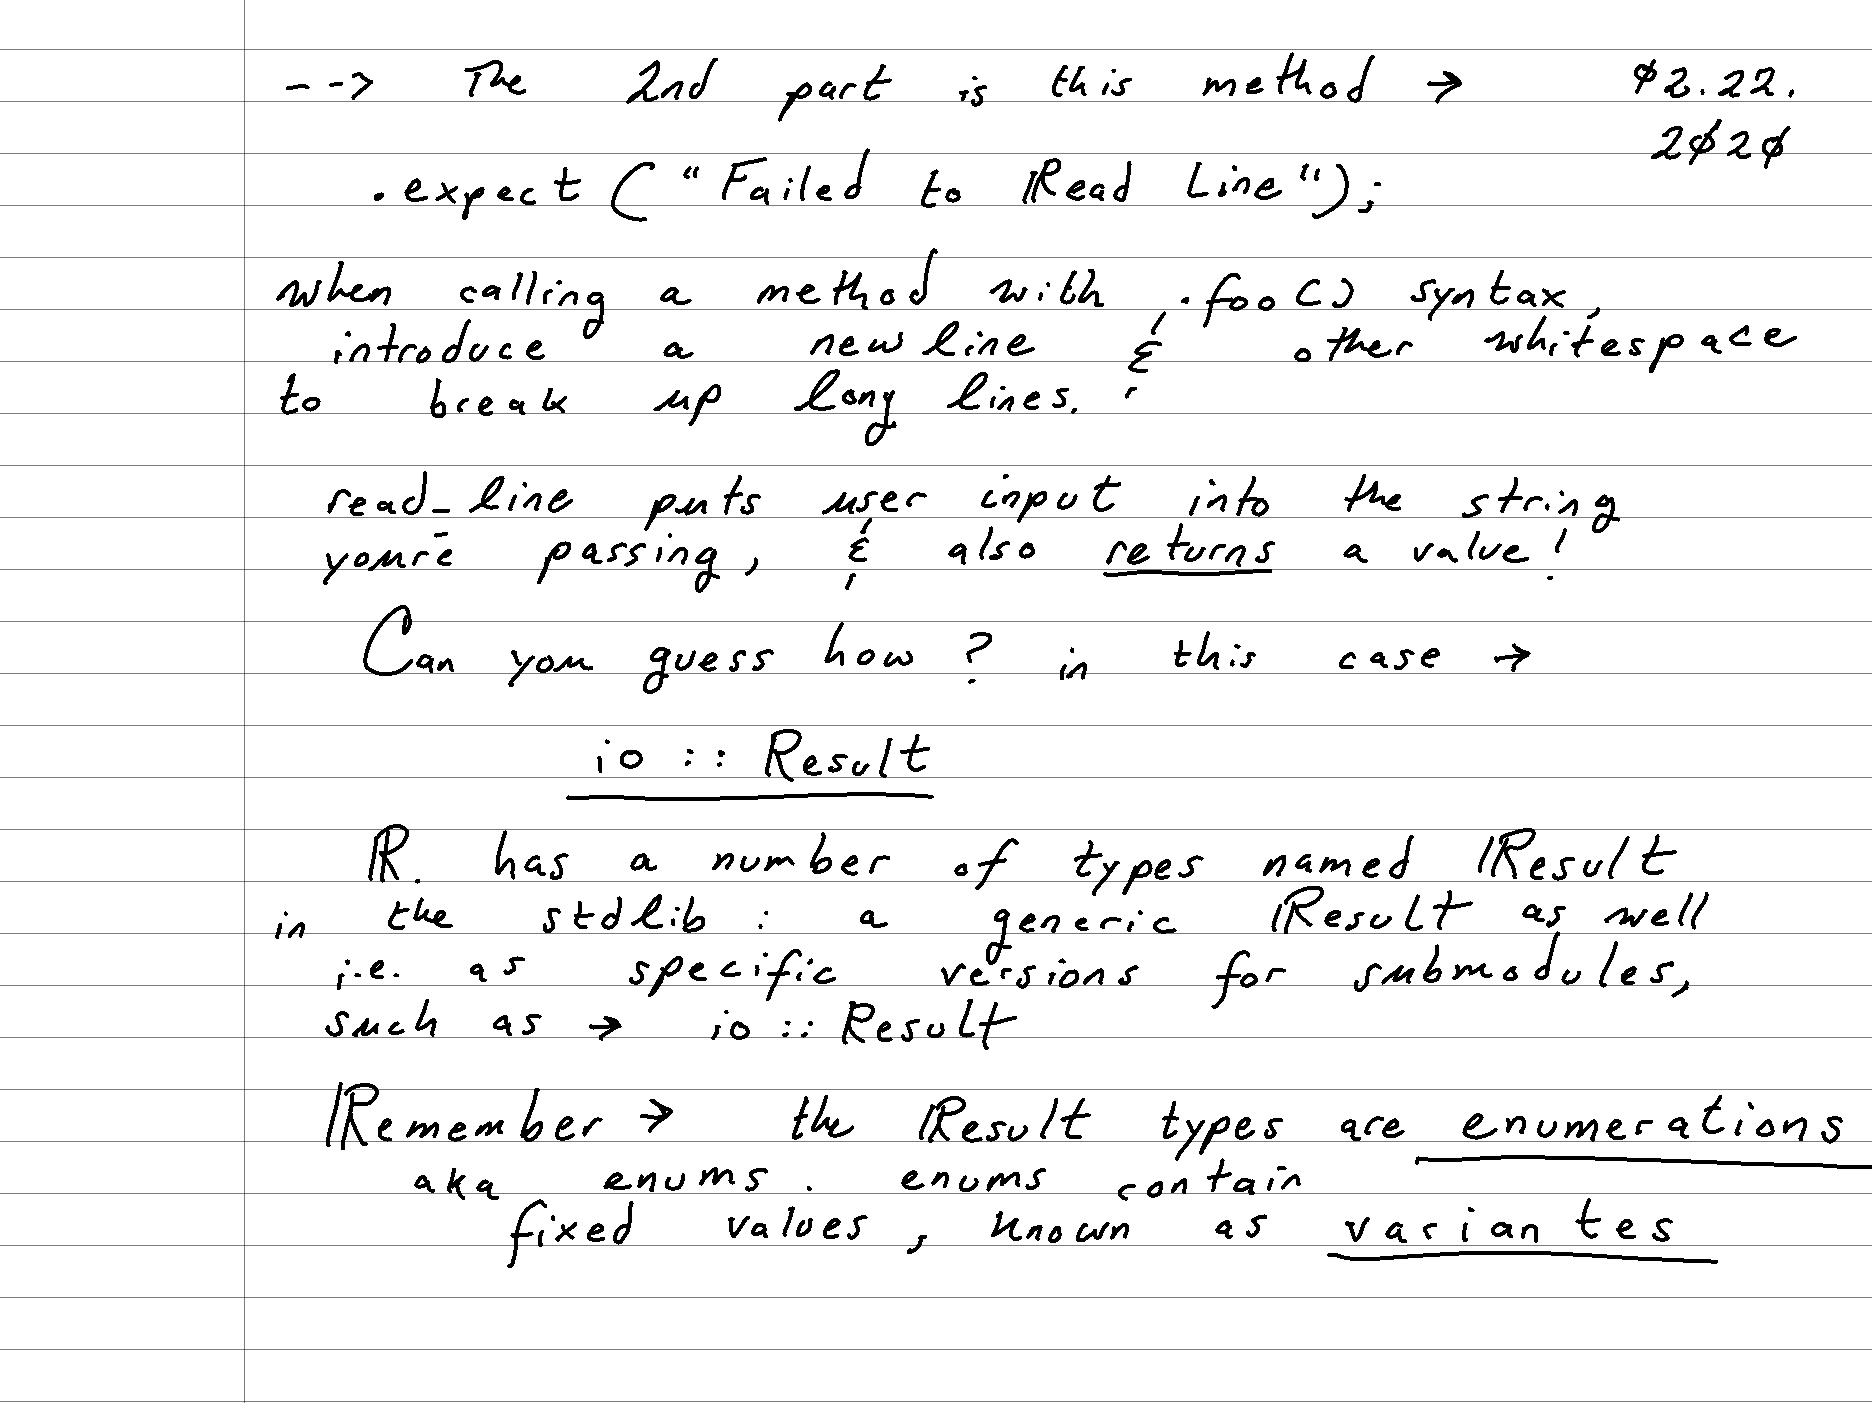 --> The 2nd part is this method → 02.22.
2020
.expect ("Failed to Read Line");
when calling a method with .foo() syntax,
introduce a newline & other whitespace
to break up long lines.
read_line puts user input into the string
you're passing, & also returns a value!
Can you guess how? in this case →
io :: Result
R. has a number of types named Result
in the stdlib : a generic Result as well
i.e. as specific versions for submodules,
such as → io :: Result
Remember → the Result types are enumerations
aka enums. enums contain
fixed values, known as variantes